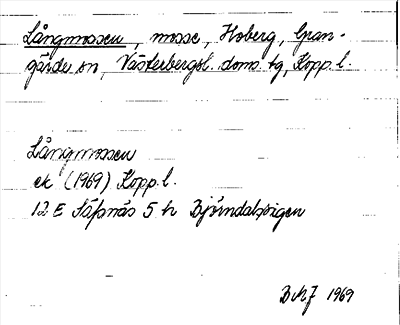 Långmossen, mosse, Hoberg, Gran-
gärde sn, Västerbergsl. doms. tg, Kopp. l.
Långmossen
ek (1969) Kopp. l.
12 E Säfsnäs 5 h Björndalsvägen
1969